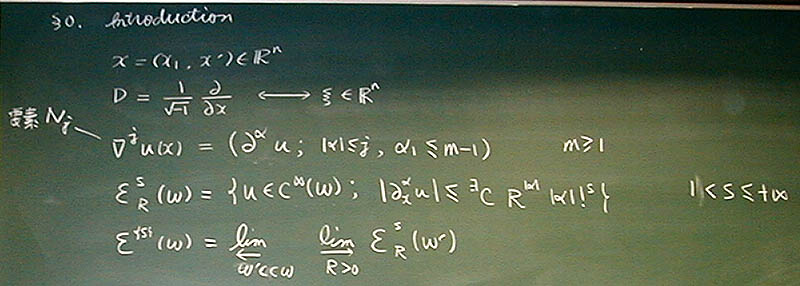 §0. Introduction
x = (x₁, x') ∈ ℝⁿ
D = 1/√-1 ∂/∂x ⟷ ξ ∈ ℝⁿ
要素 Nⱼ
∇ʲu(x) = (∂^α u ; |α| ≤ j, α₁ ≤ m-1) m ≥ 1
ℰ^s_R(ω) = {u ∈ C^∞(ω) ; |∂_x^α u| ≤ ^∃C R^{|α|} |α|!^s} 1 < s ≤ +∞
ℰ^{{s}}(ω) = lim_{← ω'⊂⊂ω} lim_{→ R>0} ℰ^s_R(ω')